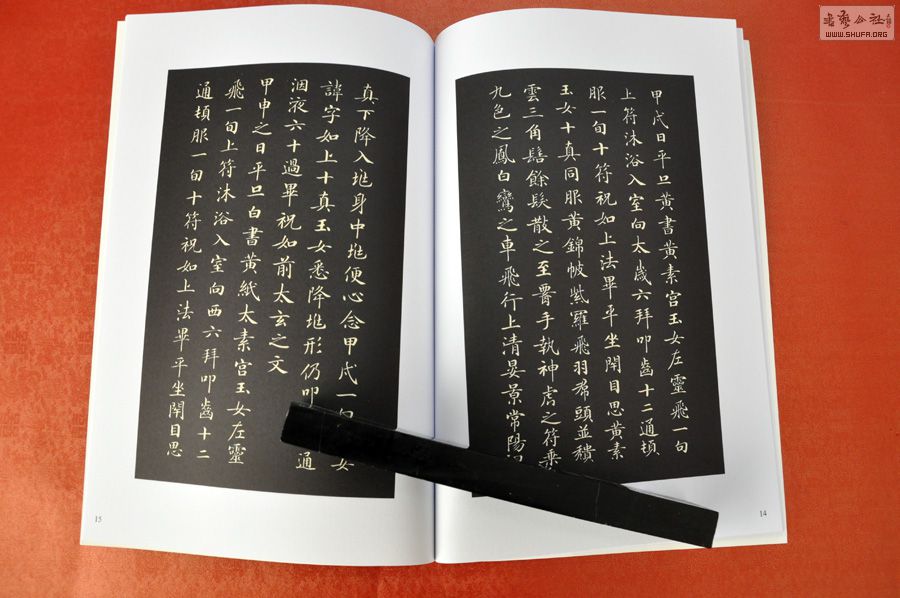 甲戌日平旦黃書黃素宮玉女左靈飛一旬
上符沐浴入室向太歲六拜叩齒十二通頓
服一旬十符祝如上法畢平坐閉目思黃素
玉女十真同服黃錦帔紫羅飛羽帬頭並穨
雲三角髻餘髮散之至腰手執神虎之符乘
九色之鳳白鸞之車飛行上清晏景常陽
14
真下降入兆身中兆便心念甲戌一旬女
諱字如上十真玉女悉降兆形仍叩通
咽液六十過畢祝如前太玄之文
甲申之日平旦白書黃紙太素宮玉女左靈
飛一旬上符沐浴入室向西六拜叩齒十二
通頓服一旬十符祝如上法畢平坐閉目思
15
書藝公社
WWW.SHUFA.ORG